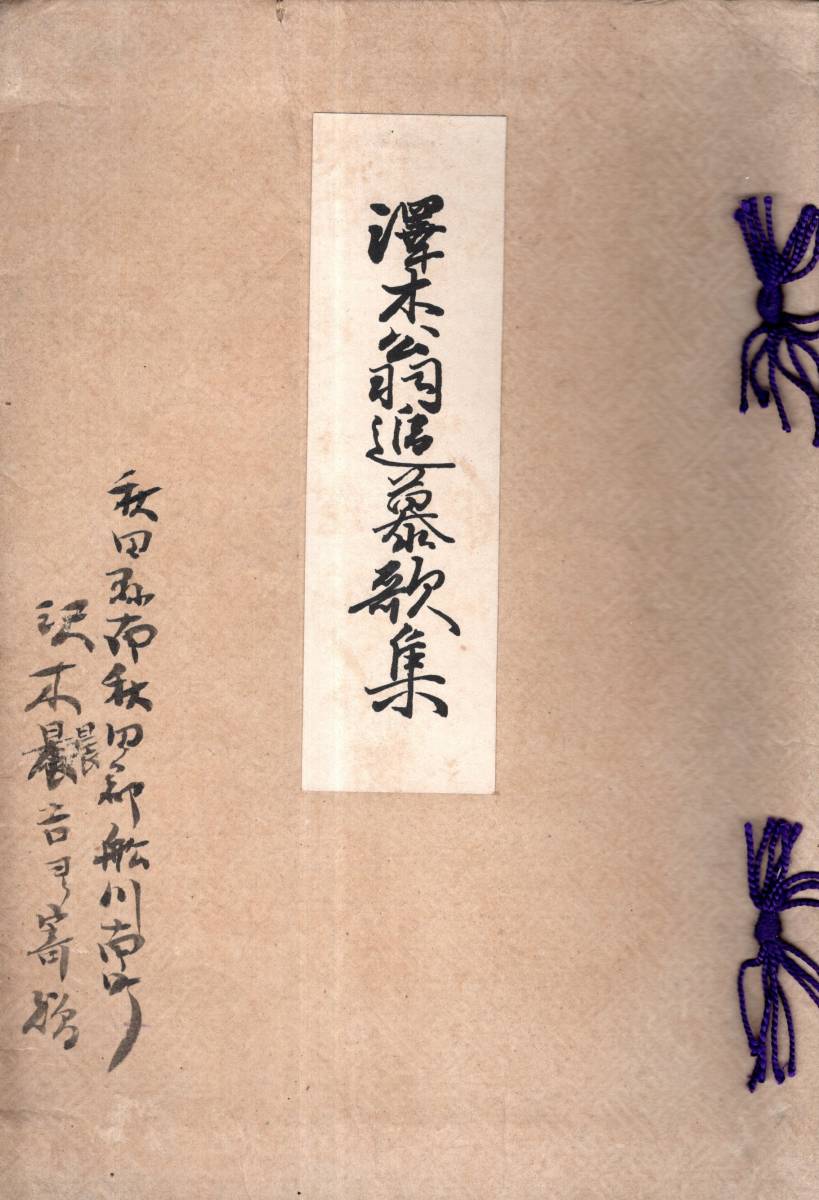 澤木翁追慕歌集
秋田県南秋田郡舩川南町
沢木晨吉ヨリ寄贈
晨